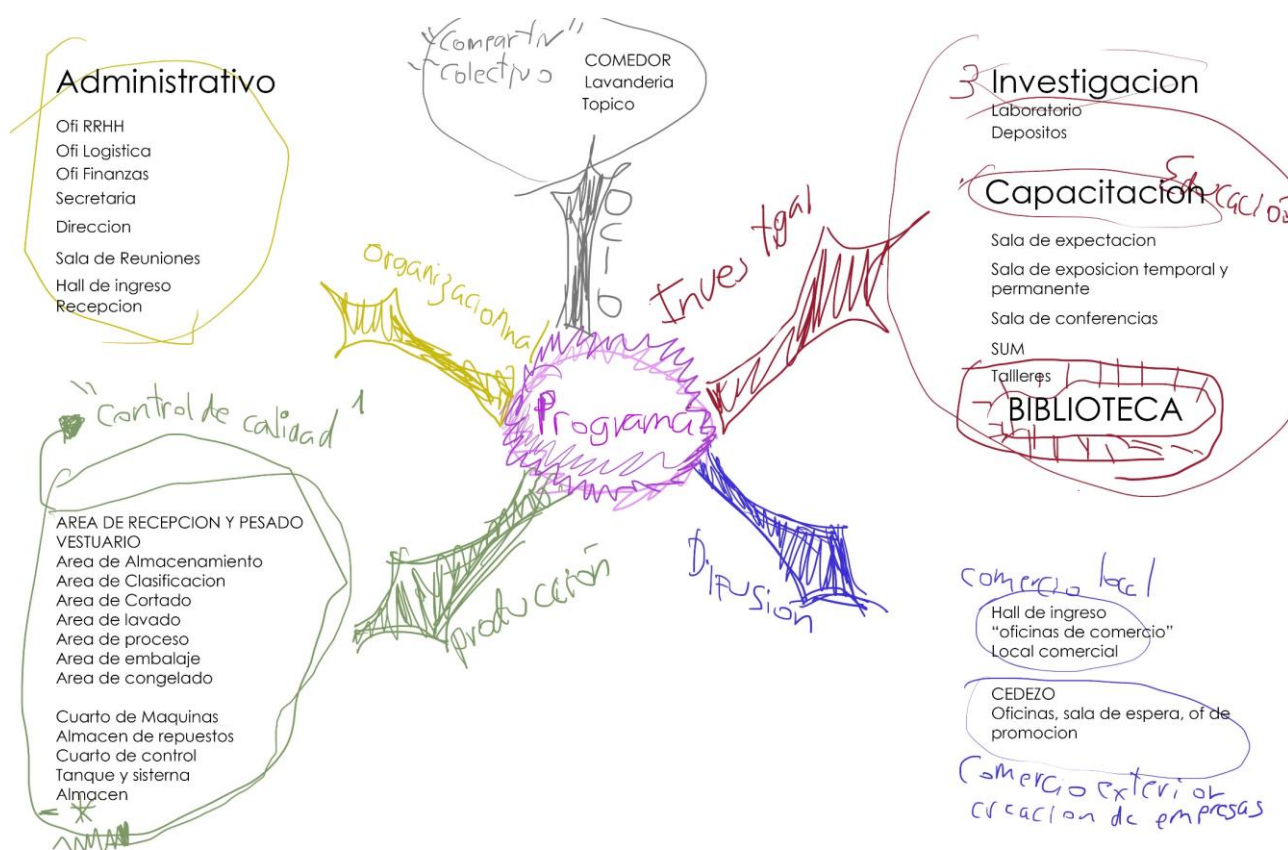 Administrativo
Ofi RRHH
Ofi Logistica
Ofi Finanzas
Secretaria
Direccion
Sala de Reuniones
Hall de ingreso
Recepcion
"Compartir"
Colectivo
COMEDOR
Lavanderia
Topico
OCIO
3 Investigacion
Laboratorio
Depositos
Capacitacion
Educacion
Sala de expectacion
Sala de exposicion temporal y
permanente
Sala de conferencias
SUM
Tallleres
BIBLIOTECA
Organizacional
Programa
Difusión
producción
"control de calidad"
AREA DE RECEPCION Y PESADO
VESTUARIO
Area de Almacenamiento
Area de Clasificacion
Area de Cortado
Area de lavado
Area de proceso
Area de embalaje
Area de congelado
Cuarto de Maquinas
Almacen de repuestos
Cuarto de control
Tanque y sisterna
Almacen
comercio local
Hall de ingreso
"oficinas de comercio"
Local comercial
CEDEZO
Oficinas, sala de espera, of de
promocion
comercio exterior
creacion de empresas